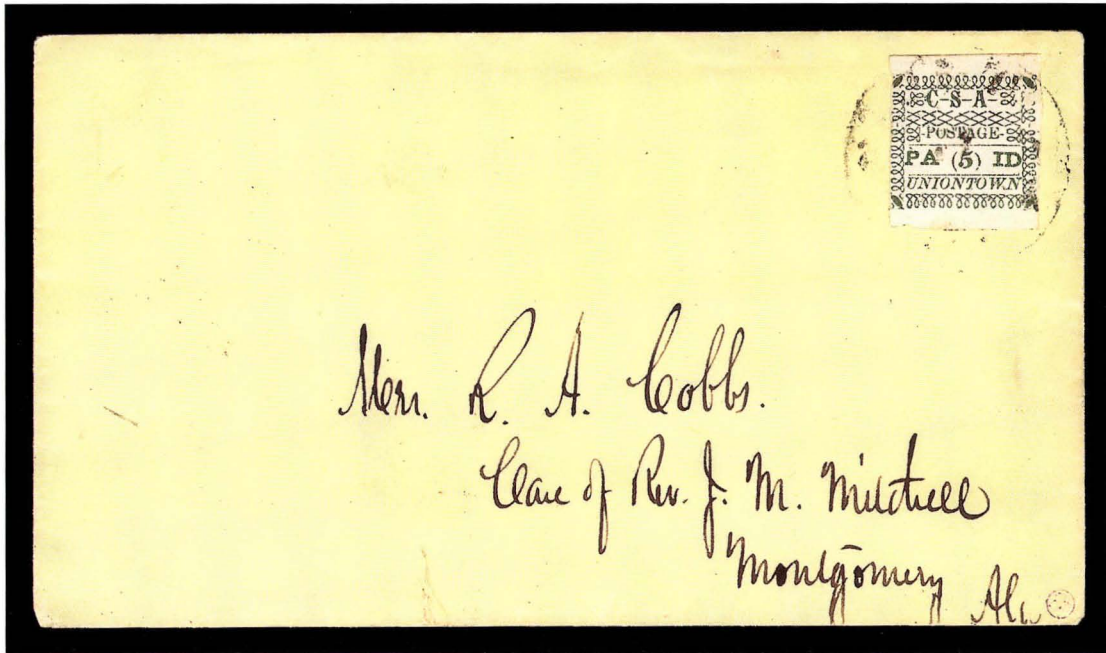 C-S-A-
-POSTAGE-
PA (5) ID
UNIONTOWN
Mrs. R. A. Cobbs.
Care of Rev. J. M. Mitchell
Montgomery
Ala.